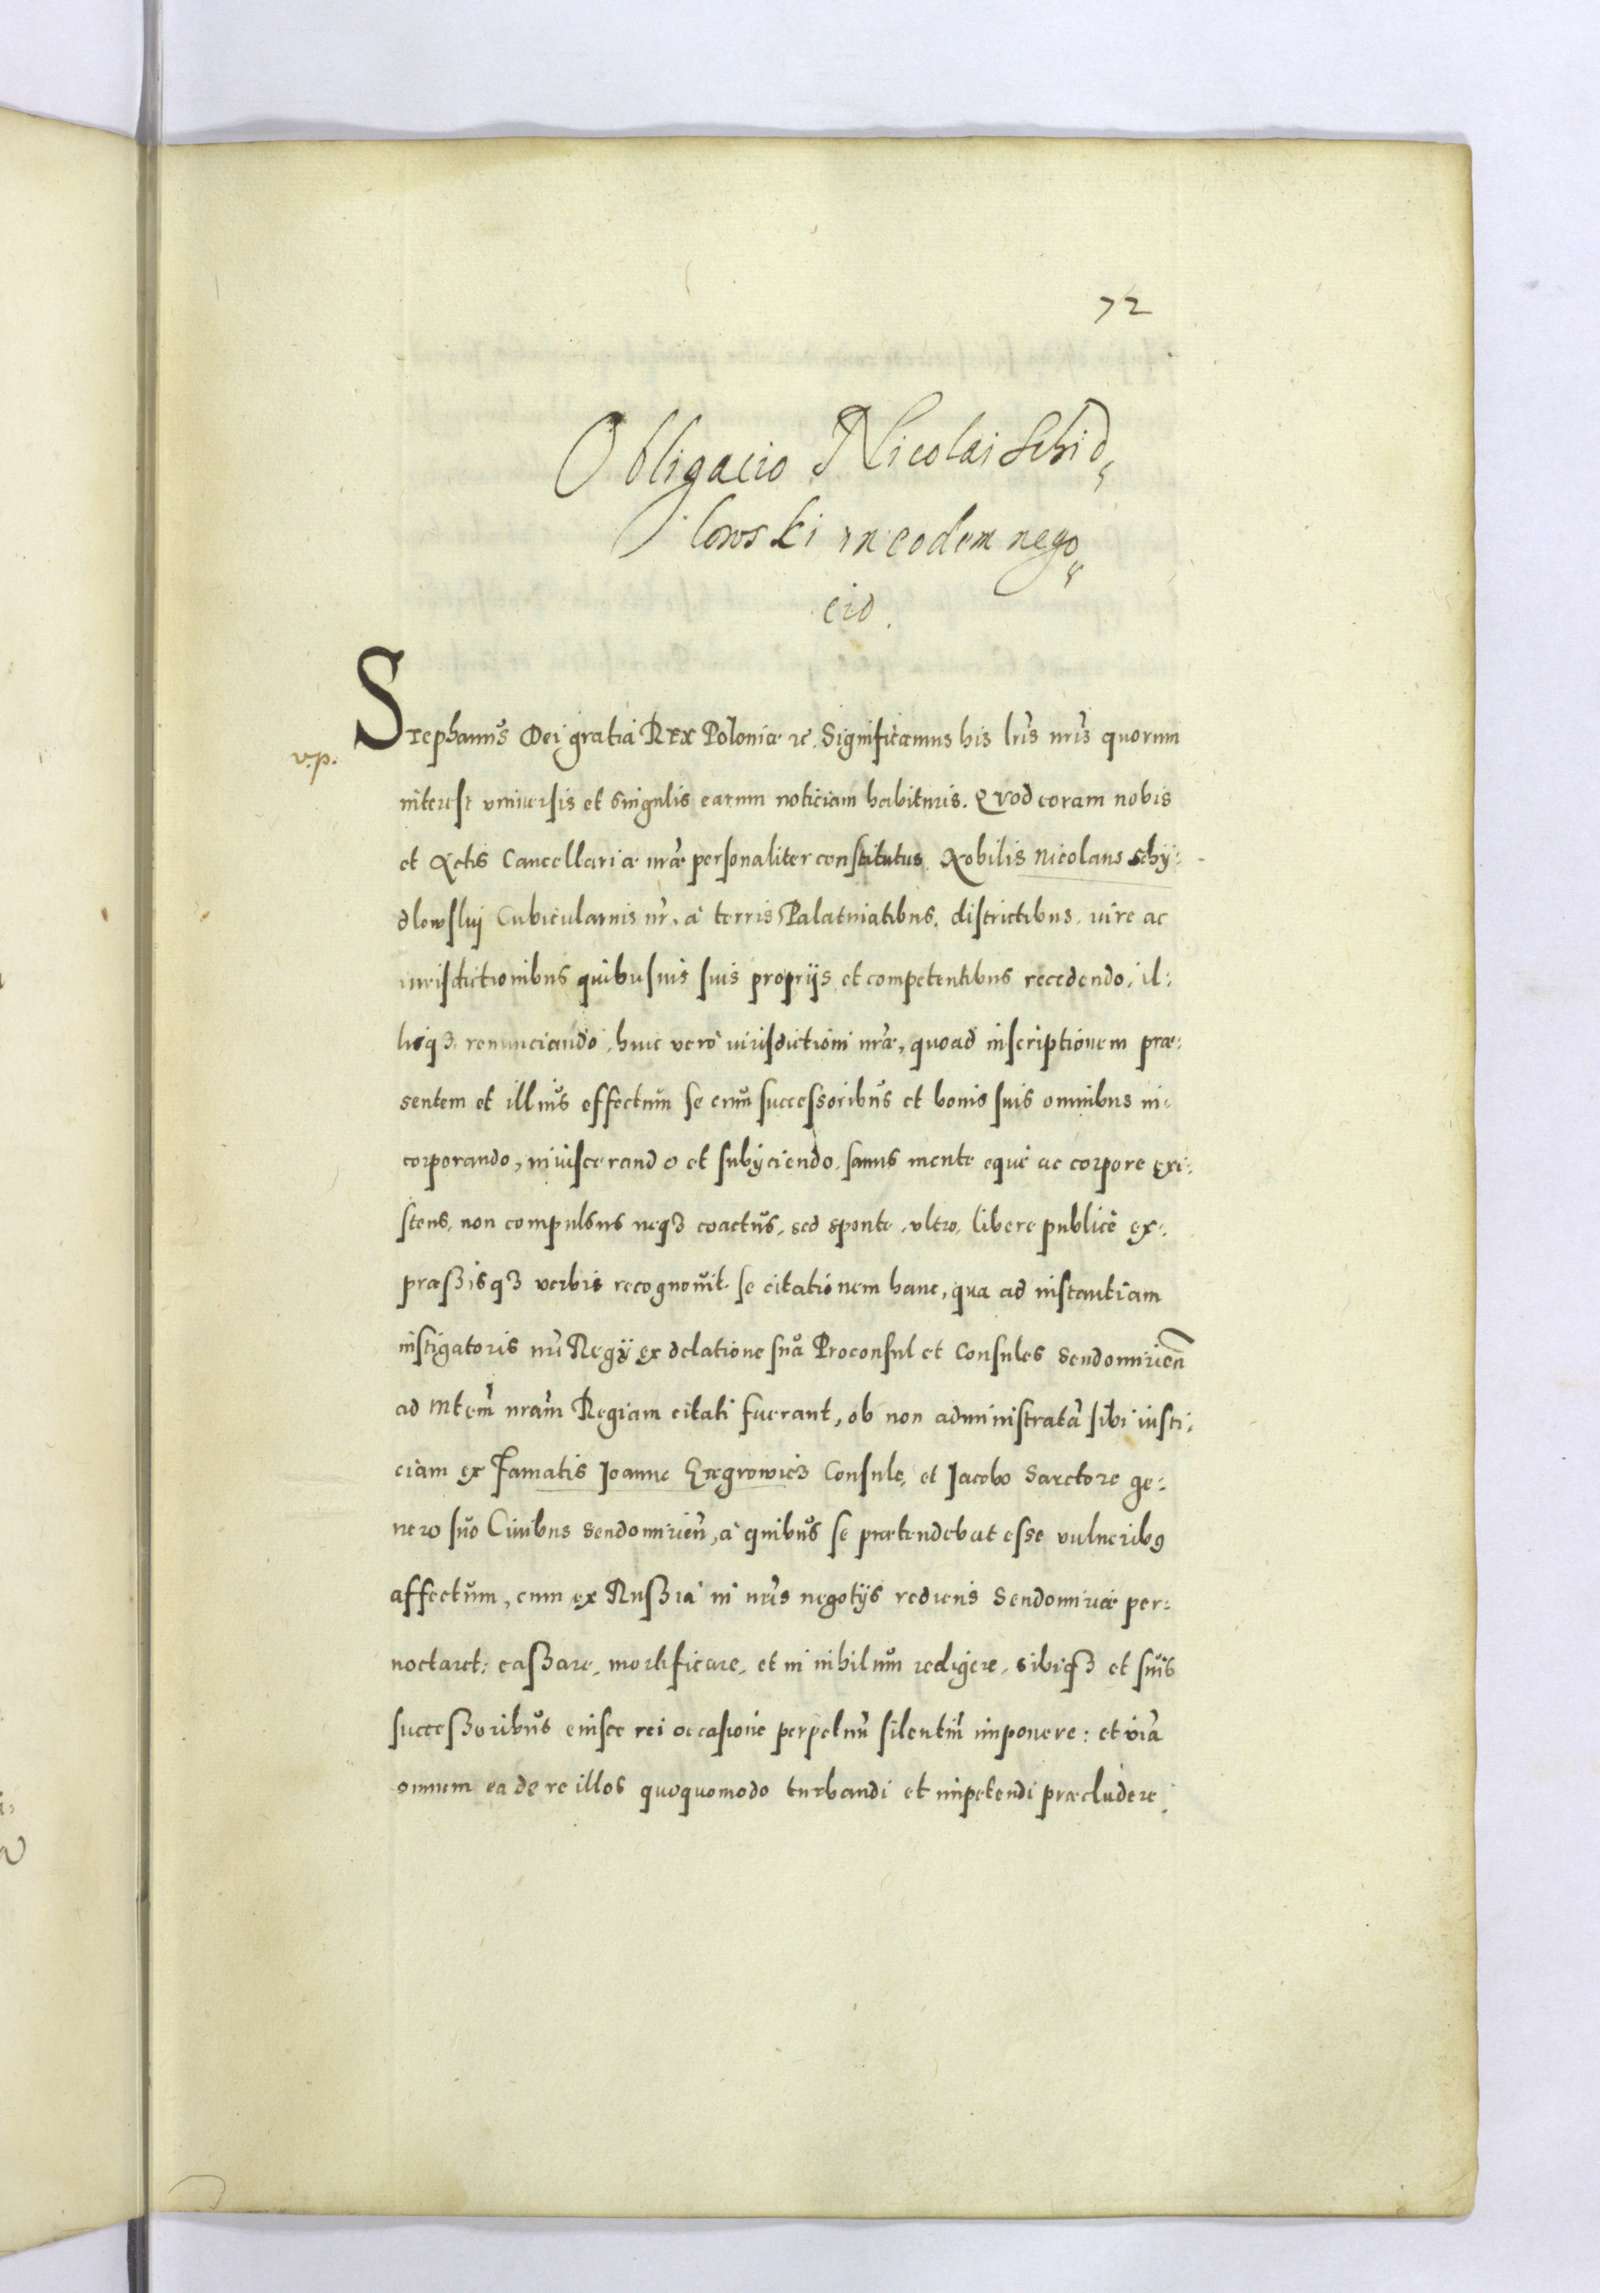 72
Obligacio Nicolai Schid,
lowski in eodem nego,
cio.
Stephanus Dei gratia Rex Poloniæ etc. Significamus his lr̃is nr̃is quorum
v.p.
interest vniuersis et singulis earum noticiam habituris. Quod coram nobis
et Actis Cancellariæ nr̃æ personaliter constitutus Nobilis Nicolaus Schÿ:
dlowskij Cubicularius nr̃, à terris, Palatinatibus, districtibus, iure ac
iurisdictionibus quibusuis suis proprijs et competentibus recedendo, il:
lisq3 renunciando, huic verò iurisdictioni nr̃æ, quoad inscriptionem præ:
sentem et illius effectum se cum successoribus et bonis suis omnibus in:
corporando, inuiscerando et subijciendo, sanus mente eque ac corpore exi:
stens, non compulsus neq3 coactus, sed sponte, vltro, libere publicè ex:
præssisq3 verbis recognouit se citationem hanc, qua ad instantiam
instigatoris nr̃i Regij ex delatione sua Proconsul et Consules Sendomirien̄
ad Mtem̃ nram̃ Regiam citati fuerant, ob non administratã sibi iusti:
ciam ex Famatis Joanne Consule, et Jacobo Sartore ge:
nero suo Ciuibus Sendomirien̄, à quibus se prætendebat esse vulneribq
affectum, cum ex Russia in nr̃is negotijs rediens Sendomiriæ per:
noctaret: cassare, mortificare, et in nihilum redigere, sibiq3 et suis
successoribus eiusce rei occasione perpetuũ silentiũ imponere: et viã
omnem ea de re illos quoquomodo turbandi et impetendi præcludere